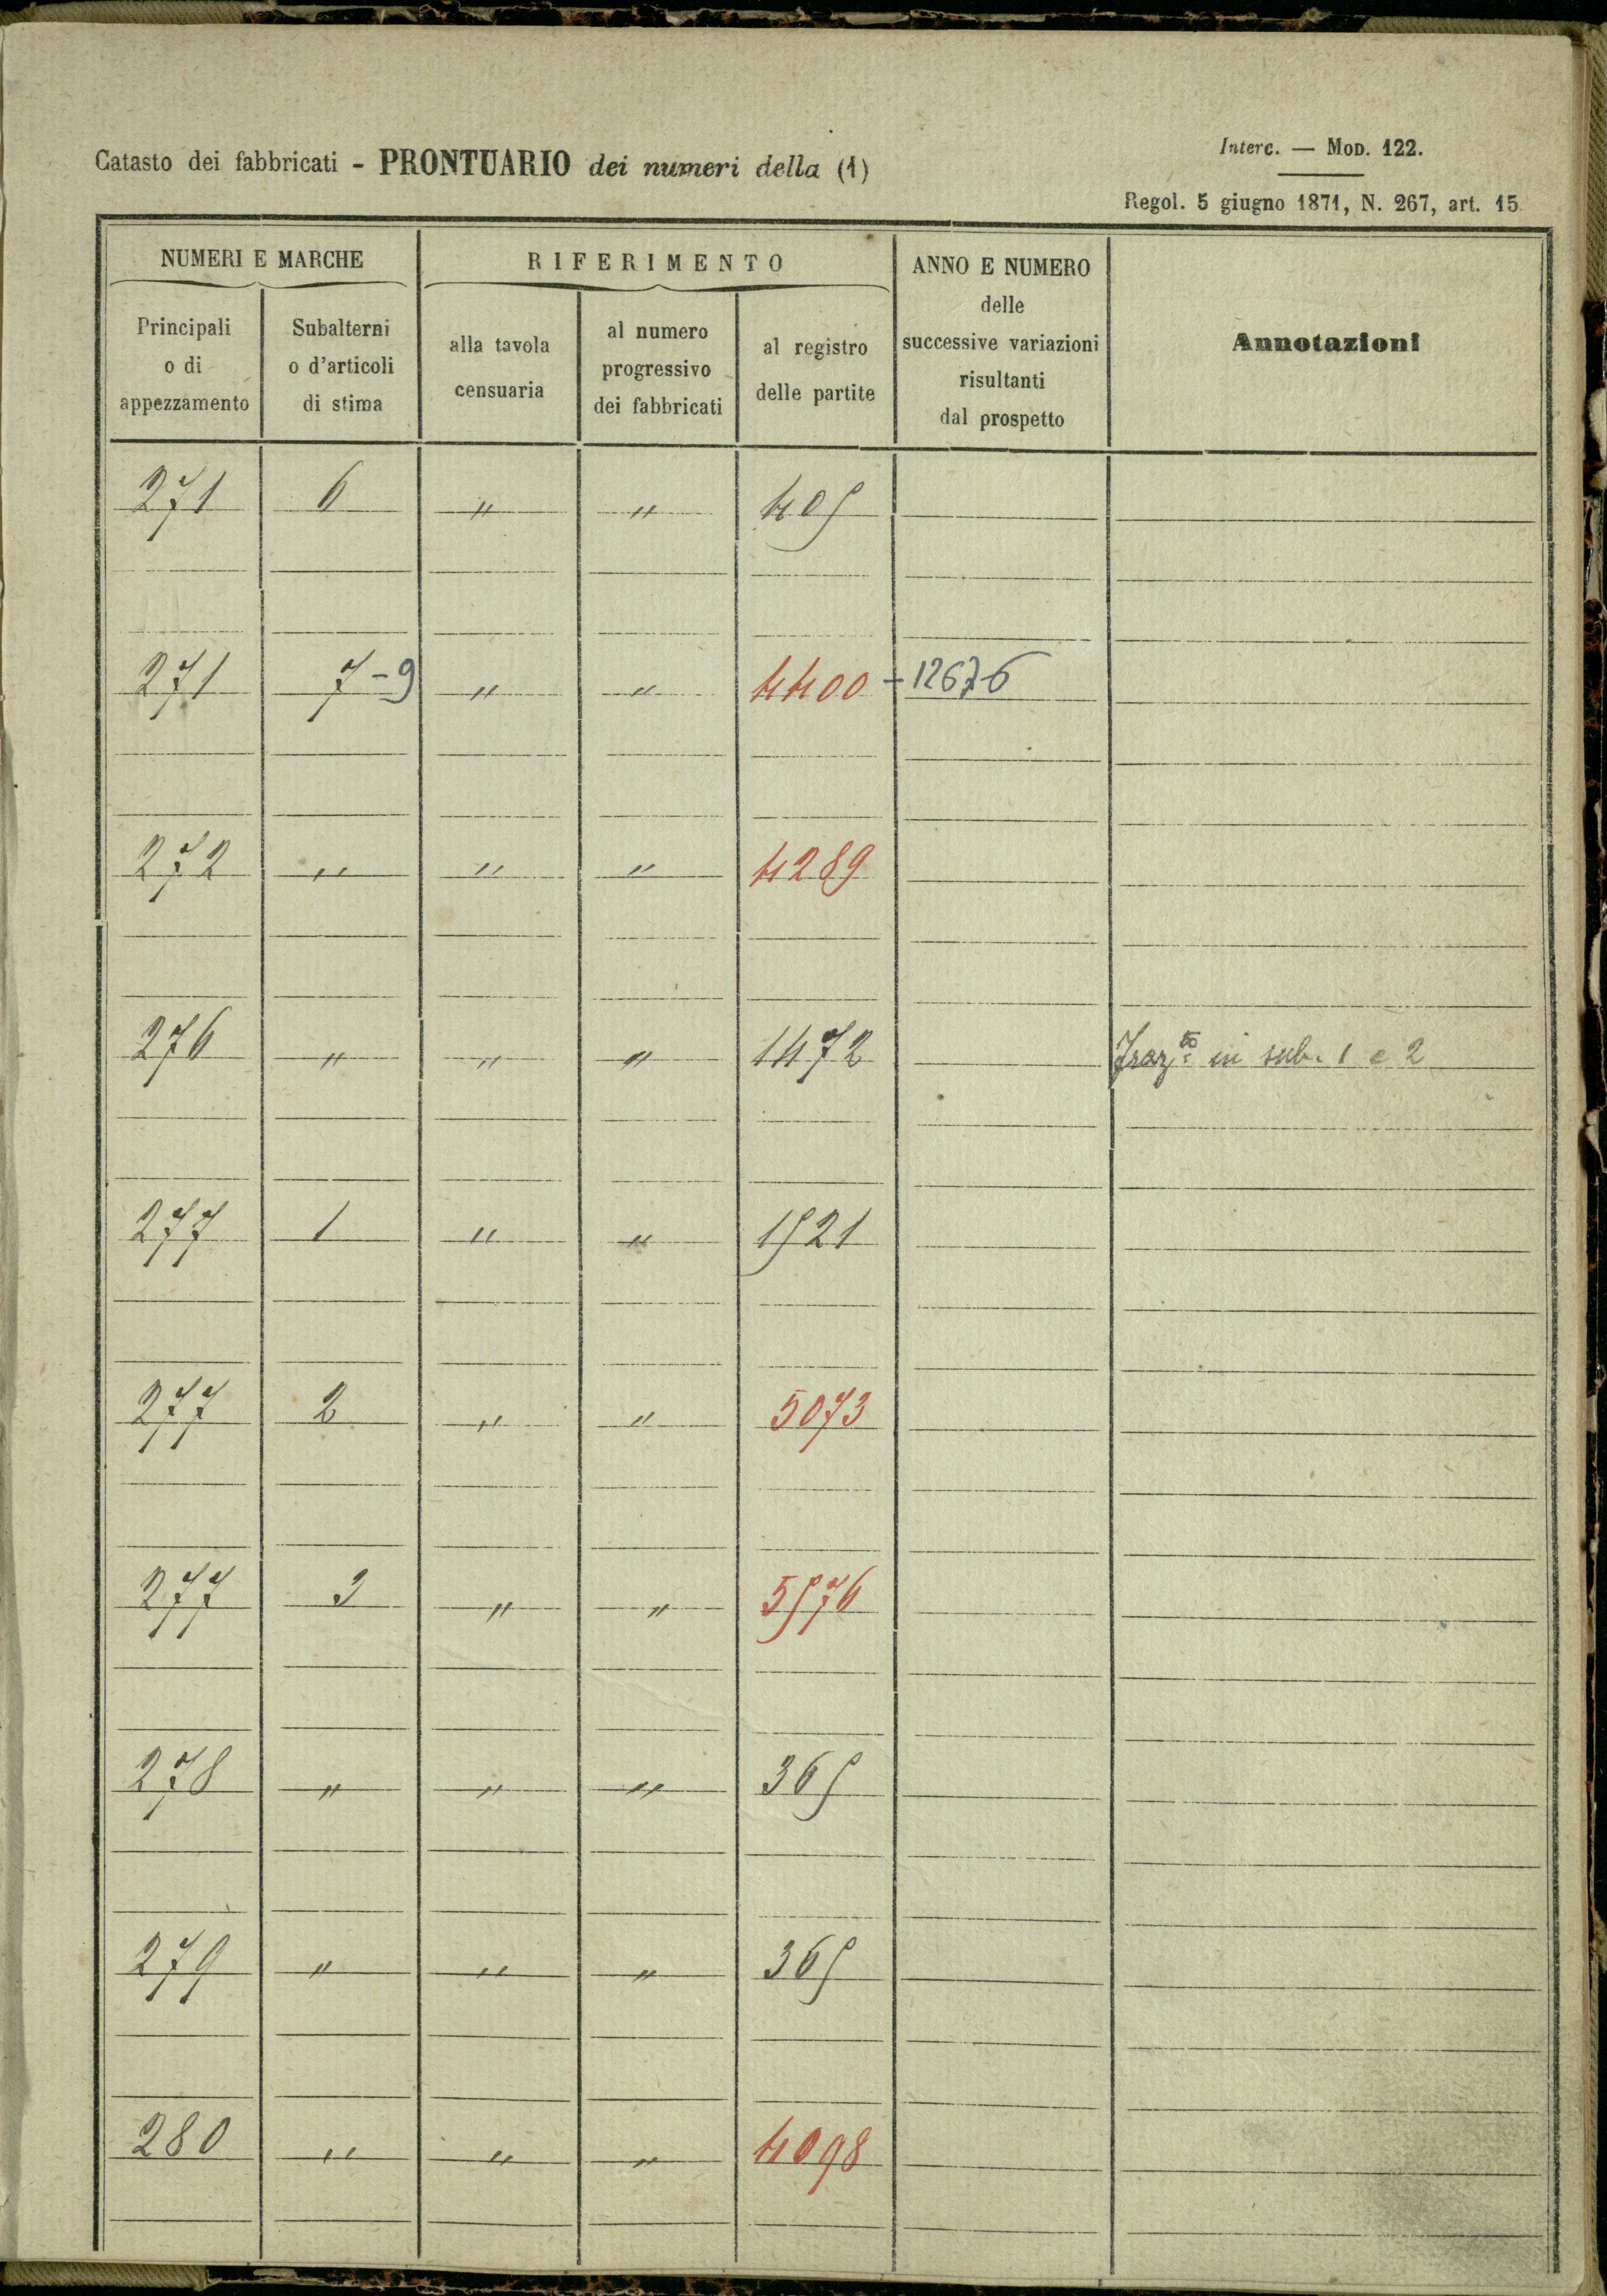 Catasto dei fabbricati - PRONTUARIO dei numeri della (1)
Interc. — Mod. 122.
Regol. 5 giugno 1871, N. 267, art. 15
NUMERI E MARCHE
RIFERIMENTO
ANNO E NUMERO
delle
successive variazioni
risultanti
dal prospetto
Annotazioni
Principali
o di
appezzamento
Subalterni
o d'articoli
di stima
alla tavola
censuaria
al numero
progressivo
dei fabbricati
al registro
delle partite
271 6 " " 405
271 7-9 " " 4400 - 12676
272 " " " 4289
276 " " " 1472 Fraz.to in sub. 1 e 2
277 1 " " 1521
277 2 " " 5073
277 3 " " 5576
278 " " " 365
279 " " " 365
280 " " " 4098